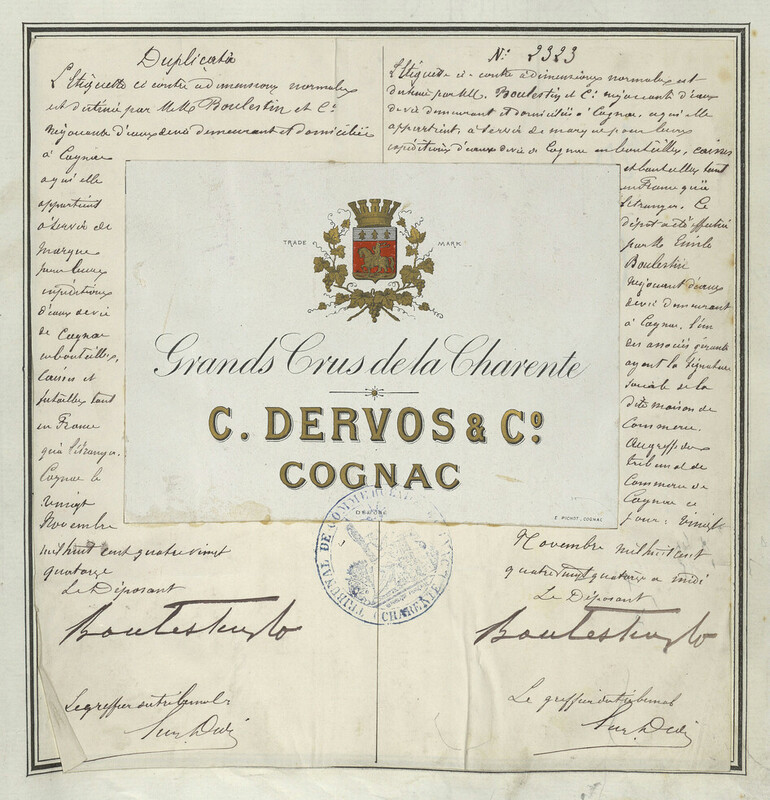 Duplicata
L'étiquette ci contre à dimensions normales
est détenue par M.M. Boulestin et Cie
négociants d'eaux de vie demeurant et domiciliés
à Cognac
à qui elle
appartient
à servir de
marque
pour leurs
expéditions
d'eaux de vie
de Cognac
en bouteilles,
caisses et
futailles tant
en France
qu'à l'étranger.
Cognac le
vingt
Novembre
mil huit cent quatre vingt
quatorze
Le Déposant
Boulestin & Co
Le greffier du tribunal
No 2323
L'étiquette ci-contre à dimensions normales est
détenue par M.M. Boulestin et Cie négociants d'eaux
de vie demeurant et domiciliés à Cognac, à qui elle
appartient, à servir de marque pour leurs
expéditions d'eaux de vie de Cognac en bouteilles, caisses
et futailles tant
en France qu'à
l'étranger. Ce
dépôt a été effectué
par M. Emile
Boulestin
négociant d'eaux
de vie demeurant
à Cognac, l'un
des associés gérants
ayant la signature
sociale de la
dite maison de
Commerce.
Au greffe du
tribunal de
Commerce de
Cognac ce
jour: vingt
Novembre mil huit cent
quatre vingt quatorze à midi
Le Déposant
Boulestin & Co
Le greffier du tribunal
TRADE MARK
Grands Crus de la Charente
C. DERVOS & Co
COGNAC
E. PICHOT, COGNAC
TRIBUNAL DE COMMERCE
CHARENTE